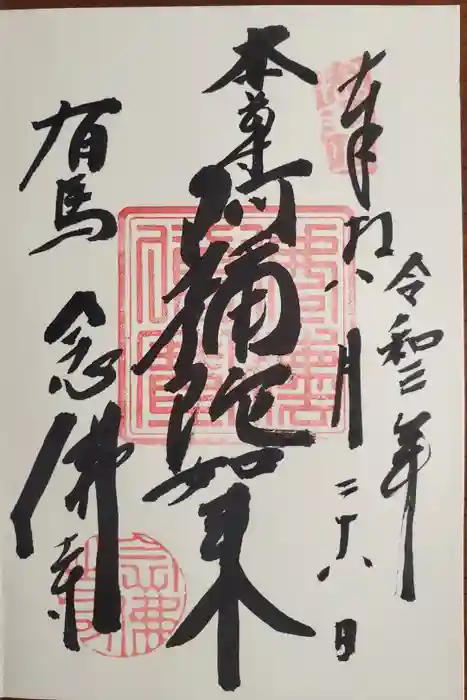 奉拝
令和三年
八月二十八日
本尊阿彌陀如来
有馬 念佛寺